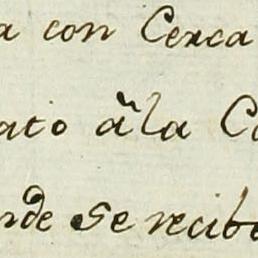 a con Cerca
ato àla C
nde se recib